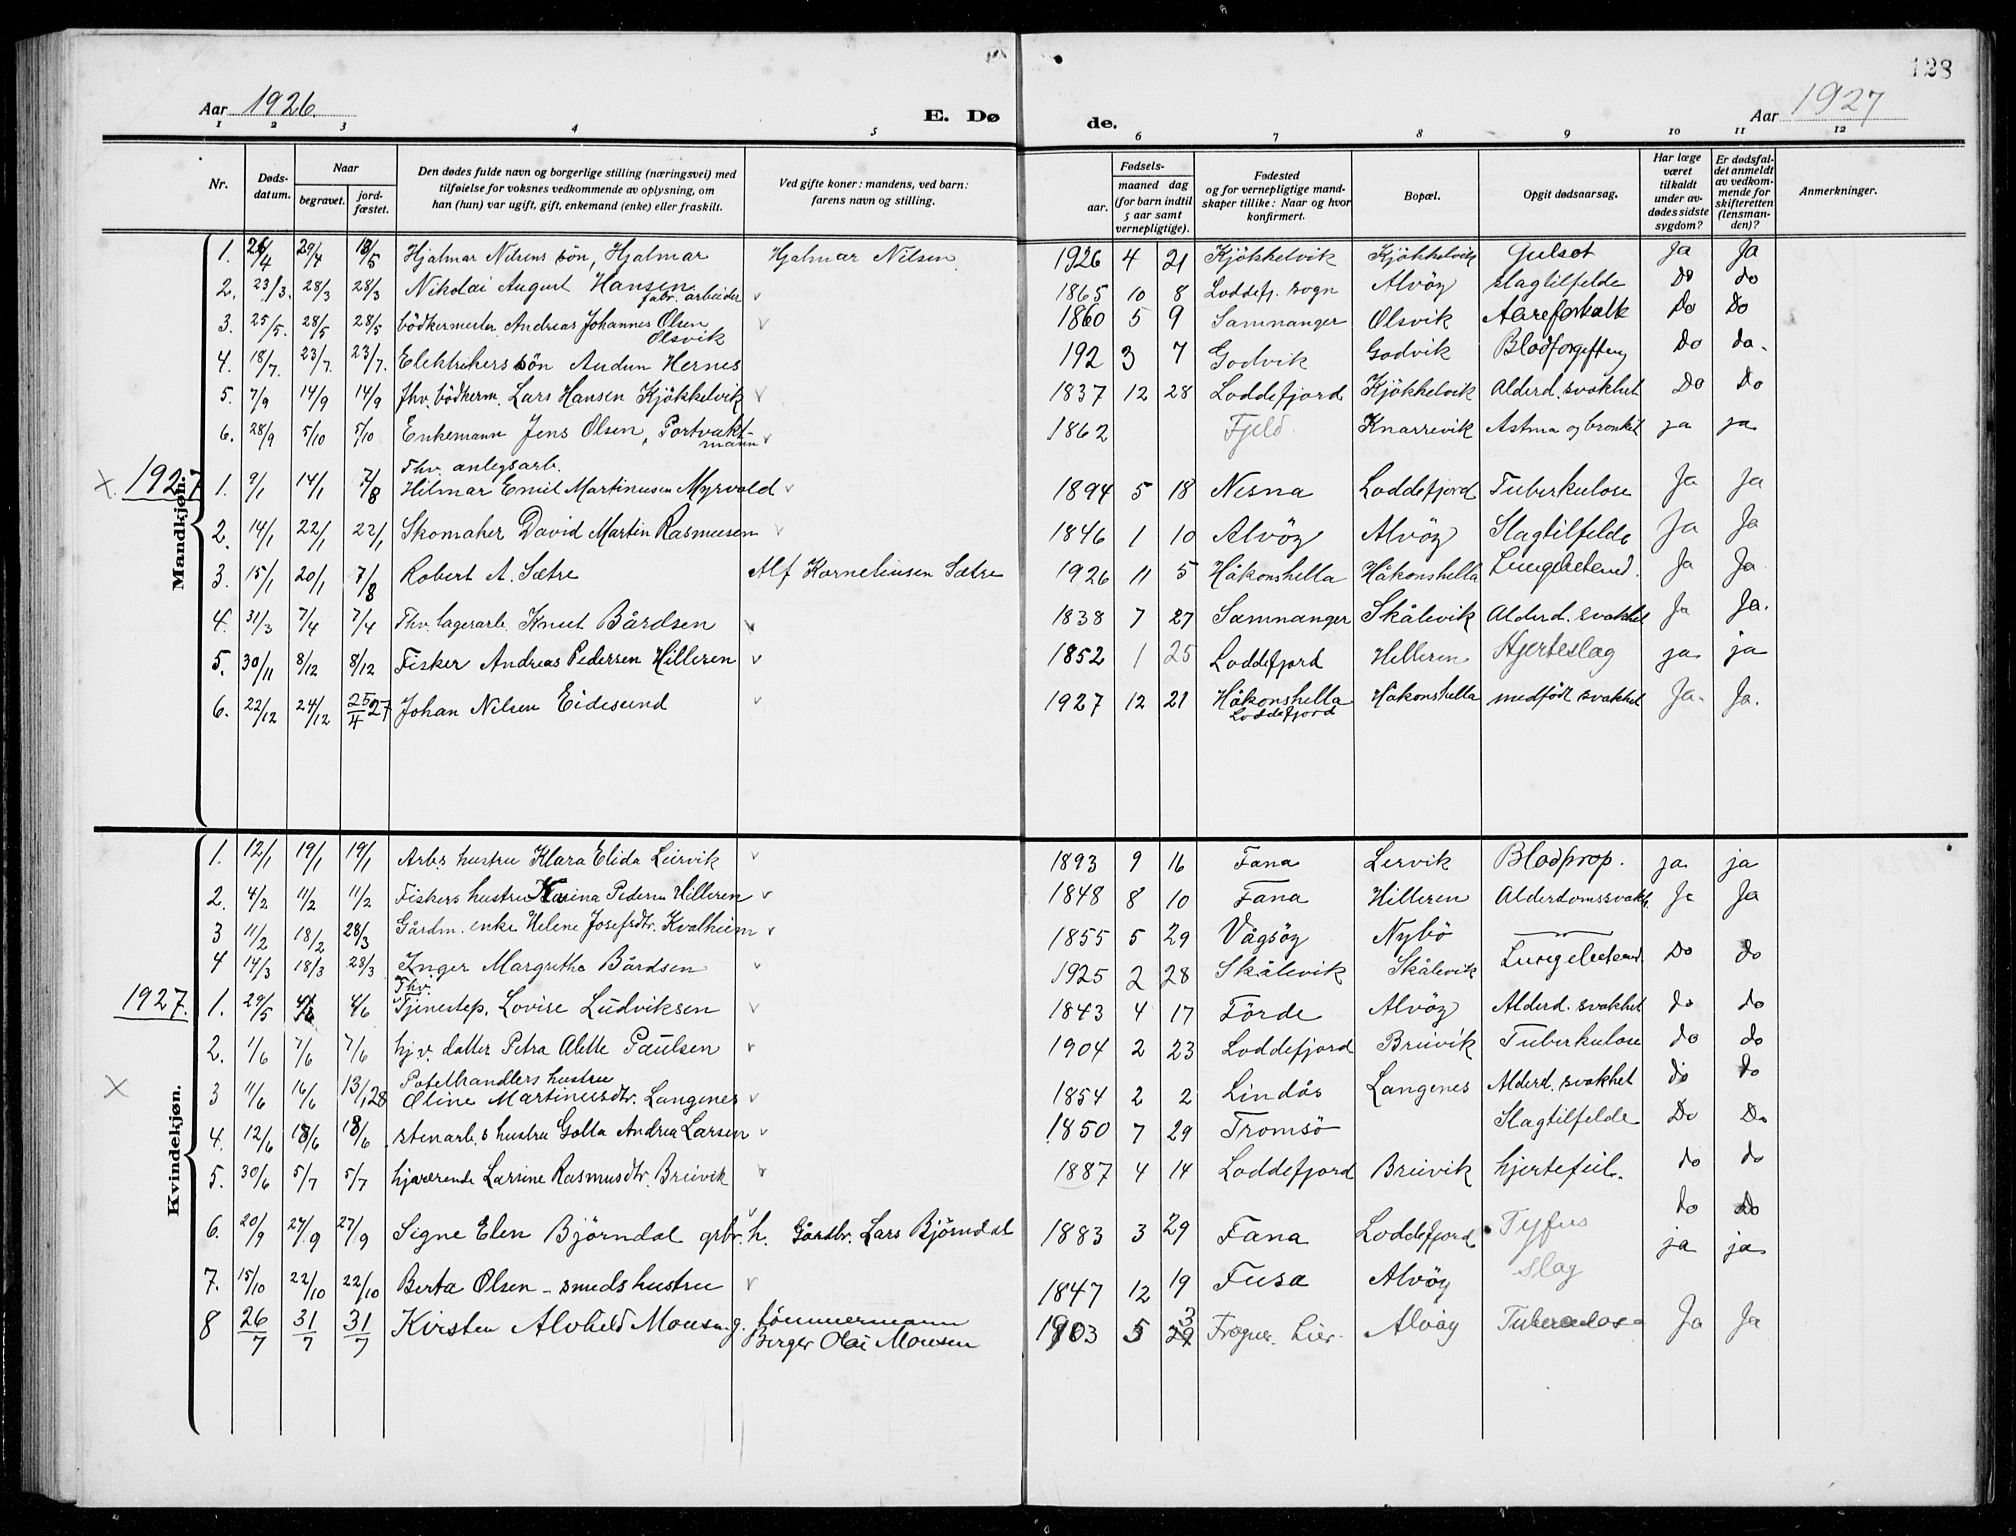 128
Aar 1926. E. Dø de. Aar 1927
1 2 3 4 5 6 7 8 9 10 11 12
Nr. Døds-datum. Naar begravet. jord-fæstet. Den dødes fulde navn og borgerlige stilling (næringsvei) med tilføielse for voksnes vedkommende av oplysning, om han (hun) var ugift, gift, enkemand (enke) eller fraskilt. Ved gifte koner: mandens, ved barn: farens navn og stilling. Fødsels- aar. maaned dag (for barn indtil 5 aar samt vernepligtige). Fødested og for vernepligtige mand-skaper tillike: Naar og hvor konfirmert. Bopæl. Opgit dødsaarsag. Har læge været tilkaldt under av-dødes sidste sygdom? Er dødsfal-det anmeldt av vedkom-mende for skifteretten (lensman-den)? Anmerkninger.
Mandkjøn.
1. 26/4 29/4 13/5 Hjalmar Nilsens sön, Hjalmar Hjalmar Nilsen. 1926 4 21 Kjökkelvik Kjökkelvik Gulsot Ja Ja
2. 23/3. 28/3 28/3 Nikolai August Hansen fabr. arbeider v 1865 10 8 Loddefj. sogn Alvöy slagtilfelde Do do
3. 25/5. 28/5 28/5 bödkermester Andreas Johannes Olsen Olsvik v 1860 5 9 Samnanger Olsvik Aareforkalk Do Do
4. 18/7. 23/7. 23/7. Elektrikers sön Audun Hernes 192 3 7 Godvik Godvik Blodforgiftning Do do.
5. 7/9 14/9 14/9 fhv. bödkerm. Lars Hansen Kjökkelvik v 1837 12 28 Loddefjord Kjökkelvik Alderd. svakhet Do Do
6. 28/9 5/10 5/10 Enkemann Jens Olsen, Portvakt-mann v 1862 Fjeld. Knarrevik Astma og bronkit ja ja
x 1927
1. 9/1 14/1 7/8 Fhv. anlegsarb. Hilmar Emil Martinusen Myrvold v 1894 5 18 Nesna Loddefjord Tuberkulose Ja Ja
2. 14/1 22/1 22/1 Skomaker David Martin Rasmussen v 1846 1 10 Alvöy Alvöy Slagtilfelde Ja Ja
3. 15/1 20/1 7/8 Robert A. Sætre Alf Korneliusen Sætre 1926 11 5 Håkonshella Håkonshella Lungebetend. Ja Ja
4. 31/3 7/4 7/4 Fhv. lagerarb. Knut Bårdsen v 1838 7 27 Samnanger Skålevik Alderd. svakhet Ja Ja.
5. 30/11 8/12 8/12 Fisker Andreas Pedersen Hilleren v 1852 1 25 Loddefjord Hilleren Hjerteslag ja ja
6. 22/12 24/12 25/4 27 Johan Nilsen Eidesund v 1927 12 21 Håkonshella Loddefjord Håkonshella medfödt svakhet Ja. Ja.
Kvindekjøn.
1. 12/1 19/1 19/1 Arbs hustru Klara Elida Leirvik v 1893 9 16 Fana Lervik Blodprop. ja ja
2. 4/2 11/2 11/2 Fiskers hustru Karina Pedersn Hilleren v 1848 8 10 Fana Hilleren Alderdomssvakh. Ja Ja
3 11/2 18/2 28/3 Gårdm. enke Helene Josefsdtr. Kvalheim v 1855 5 29 Vågsöy Nybö
4 14/3 18/3 28/3 Inger Margrethe Bårdsen v 1925 2 28 Skålevik Skålevik Lungebetend. Do do
1927.
1. 29/5 4/6 4/6 Fhv. Tjenestep. Lovise Ludviksen v 1843 4 17 Förde Alvöy Alderd. svakhet do do
2. 1/6 7/6 7/6 hjv. datter Petra Alette Paulsen v 1904 2 23 Loddefjord Breivik Tuberkulose do do
x 3 11/6 16/6 13/1 28 Potethandlers hustru Oline Martinusdtr. Langenes v 1854 2 2 Lindås Langenes Alderd. svakhet do do
4. 12/6 18/6 18/6 stenarb.s hustru Golla Andrea Larsen v 1850 7 29 Tromsö Slagtilfelde Do Do
5. 30/6 5/7 5/7 hjavrende Larsine Rasmusdtr. Breivik v 1887 4 14 Loddefjord Breivik hjertefeil. do do
6. 20/9 27/9 27/9 Signe Elen Björndal grbr. h. Gårdbr. Lars Björndal 1883 3 29 Fana Loddefjord Tyfus do do
7. 15/10 22/10 22/10 Berta Olsen - smeds hustru v 1847 12 19 Fusa Alvöy Slag ja ja
8 26/7 31/7 31/7 Kirsten Alvhild Monsen g. tömmermann Birger Olai Monsen 1903 5 3 29 Frogner. Lier. Alvöy Tuberculose Ja Ja